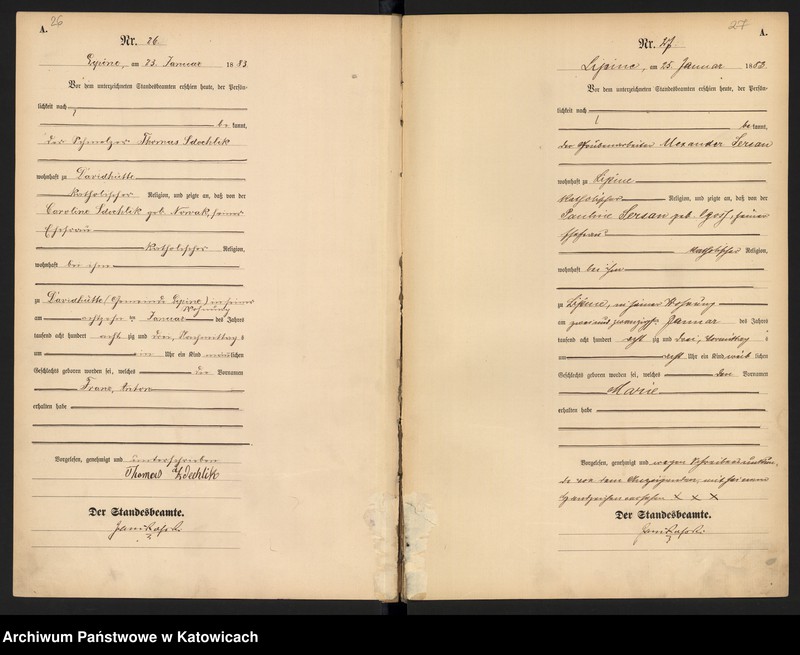 26
A.
Nr. 26.
Lipine, am 23. Januar 1883.
Vor dem unterzeichneten Standesbeamten erschien heute, der Persön-
lichkeit nach
be kannt,
der Schmelzer Thomas Zdechlik
wohnhaft zu Davidhütte
katholischer Religion, und zeigte an, daß von der
Caroline Zdechlik geb. Nowak, seiner
Ehefrau
katholischer Religion,
wohnhaft bei ihm
zu Davidhütte (Gemeinde Lipine) in seiner
Wohnung
am achtzehn ten Januar des Jahres
tausend acht hundert acht zig und drei, Nachmittag s
um ein Uhr ein Kind männlichen
Geschlechts geboren worden sei, welches die Vornamen
Franz, Anton
erhalten habe
Vorgelesen, genehmigt und unterschrieben
Thomas Zdechlik
Der Standesbeamte.
27
A.
Nr. 27.
Lipine, am 25. Januar 1883.
Vor dem unterzeichneten Standesbeamten erschien heute, der Persön-
lichkeit nach
be kannt,
der Grubenarbeiter Alexander Sersan
wohnhaft zu Lipine
katholischer Religion, und zeigte an, daß von der
Pauline Sersan geb. seiner
Ehefrau
katholischer Religion,
wohnhaft bei ihm
zu Lipine, in seiner Wohnung
am zweiundzwanzigsten Januar des Jahres
tausend acht hundert acht zig und drei, Vormittag s
um acht Uhr ein Kind weib lichen
Geschlechts geboren worden sei, welches den Vornamen
Marie
erhalten habe
Vorgelesen, genehmigt und wegen Schreibensunkun-
de von dem Anzeigenden mit seinem
Handzeichen versehen X X X
Der Standesbeamte.
Archiwum Państwowe w Katowicach